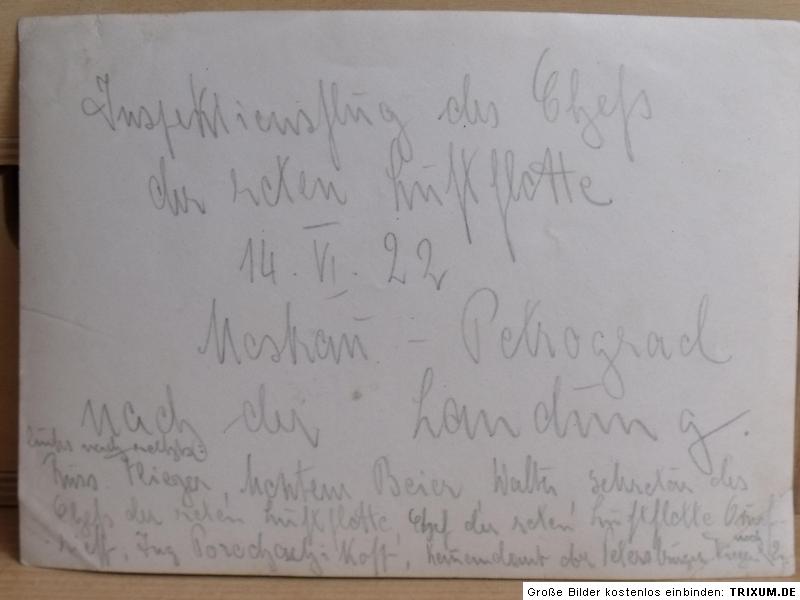 Inspektionsflug des Chefs
der roten Luftflotte
14. VI. 22
Moskau - Petrograd
nach der Landung.
links nach rechts:
Russ. Flieger, Monteur Beier, Walter Sekretär des
Chefs der roten Luftflotte, Chef der roten Luftflotte
Ing. Kommandant der Petersburger
Große Bilder kostenlos einbinden: TRIXUM.DE